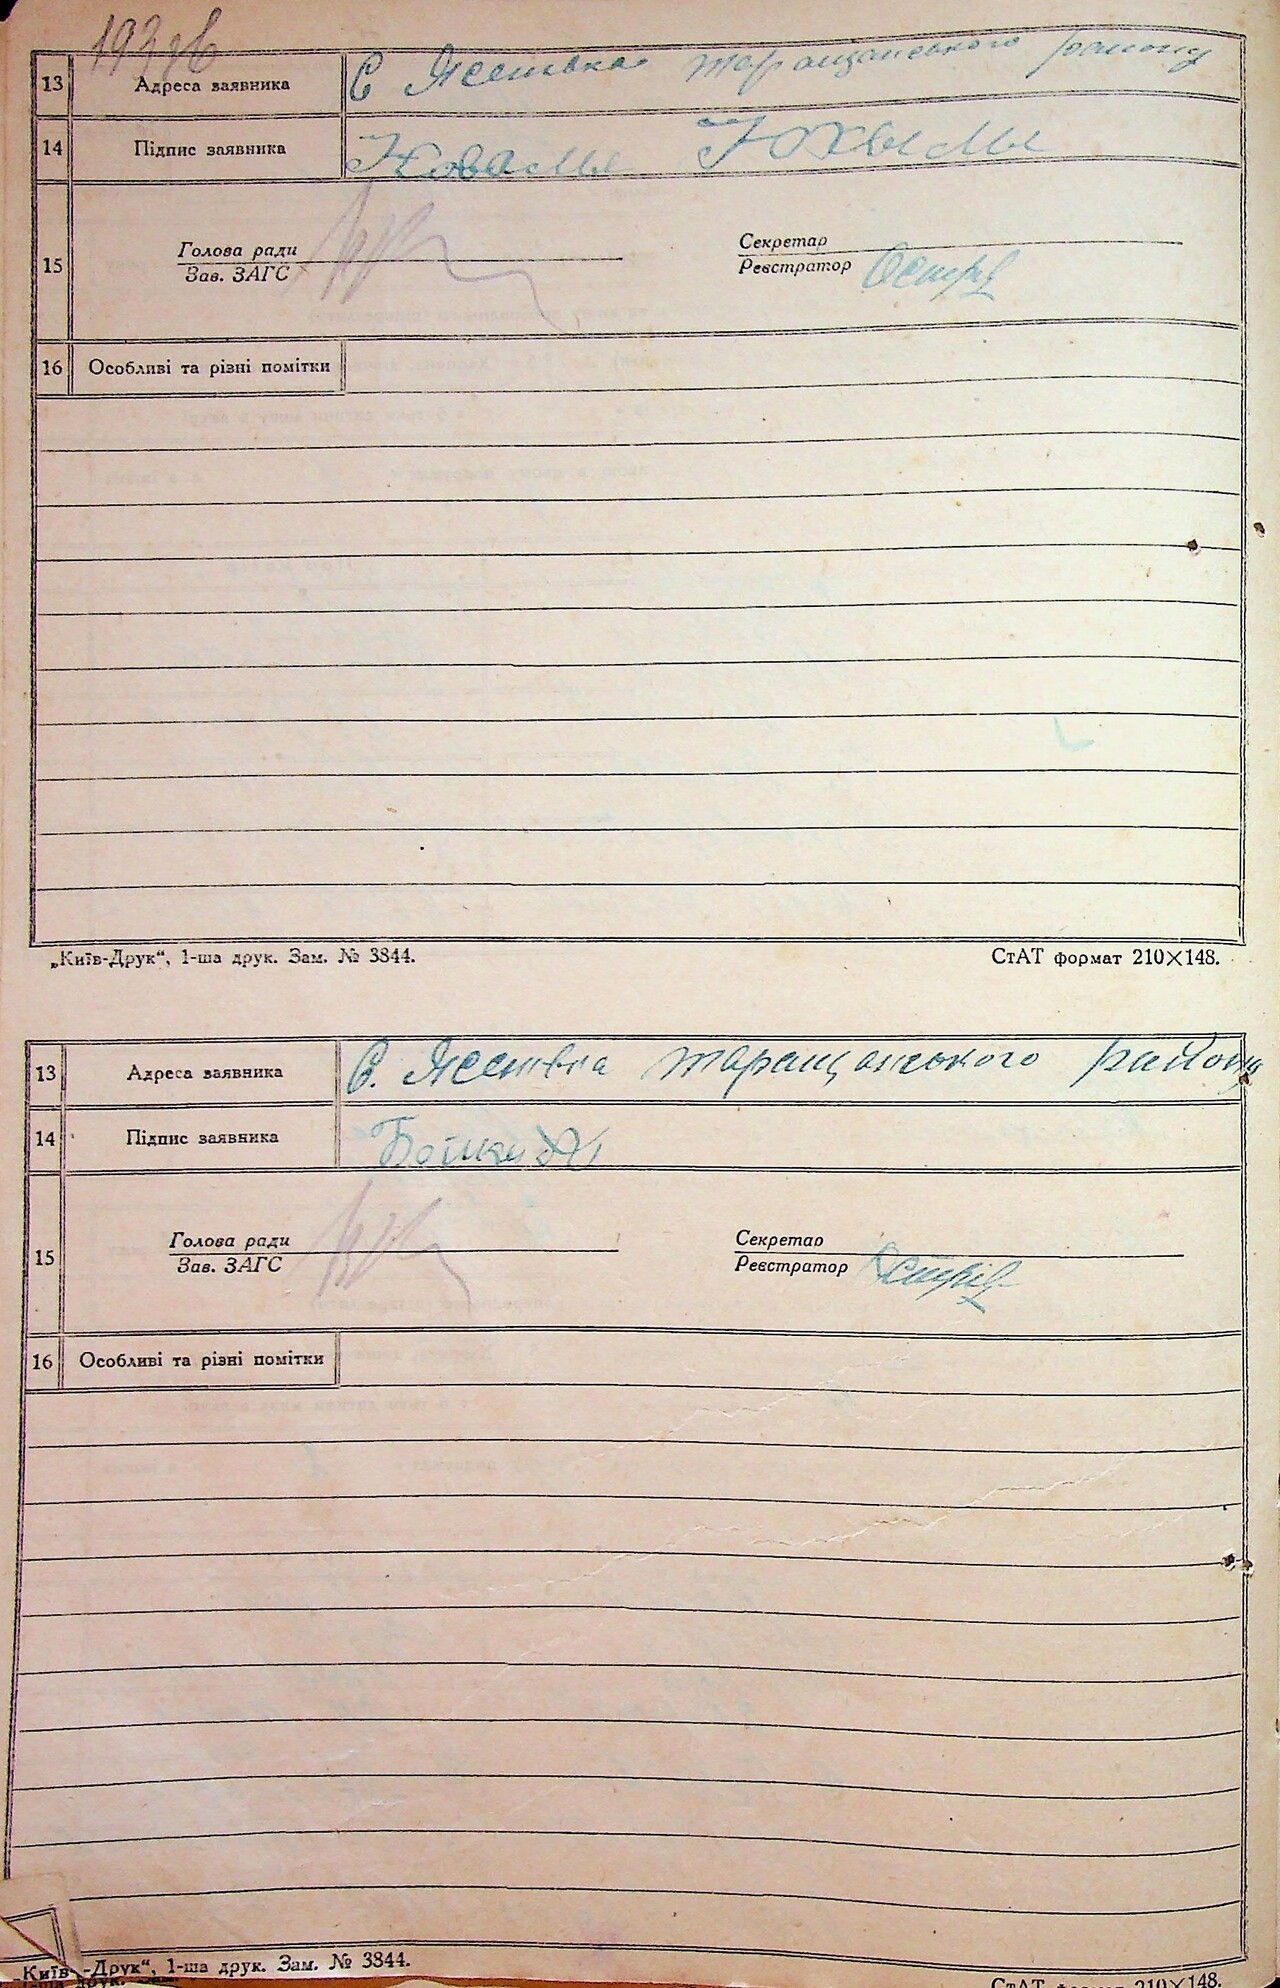 193 зв
13 Адреса заявника С Ясенівка таращанського району
14 Підпис заявника
Голова ради Секретар
15
Зав. ЗАГС Реєстратор
16 Особливі та різні помітки
„Київ-Друк“, 1-ша друк. Зам. № 3844. СтАТ формат 210×148.
13 Адреса заявника С. Ясенівка таращанського району
14 Підпис заявника
Голова ради Секретар
15
Зав. ЗАГС Реєстратор
16 Особливі та різні помітки
Київ-Друк“, 1-ша друк. Зам. № 3844.
СтАТ формат 210×148.